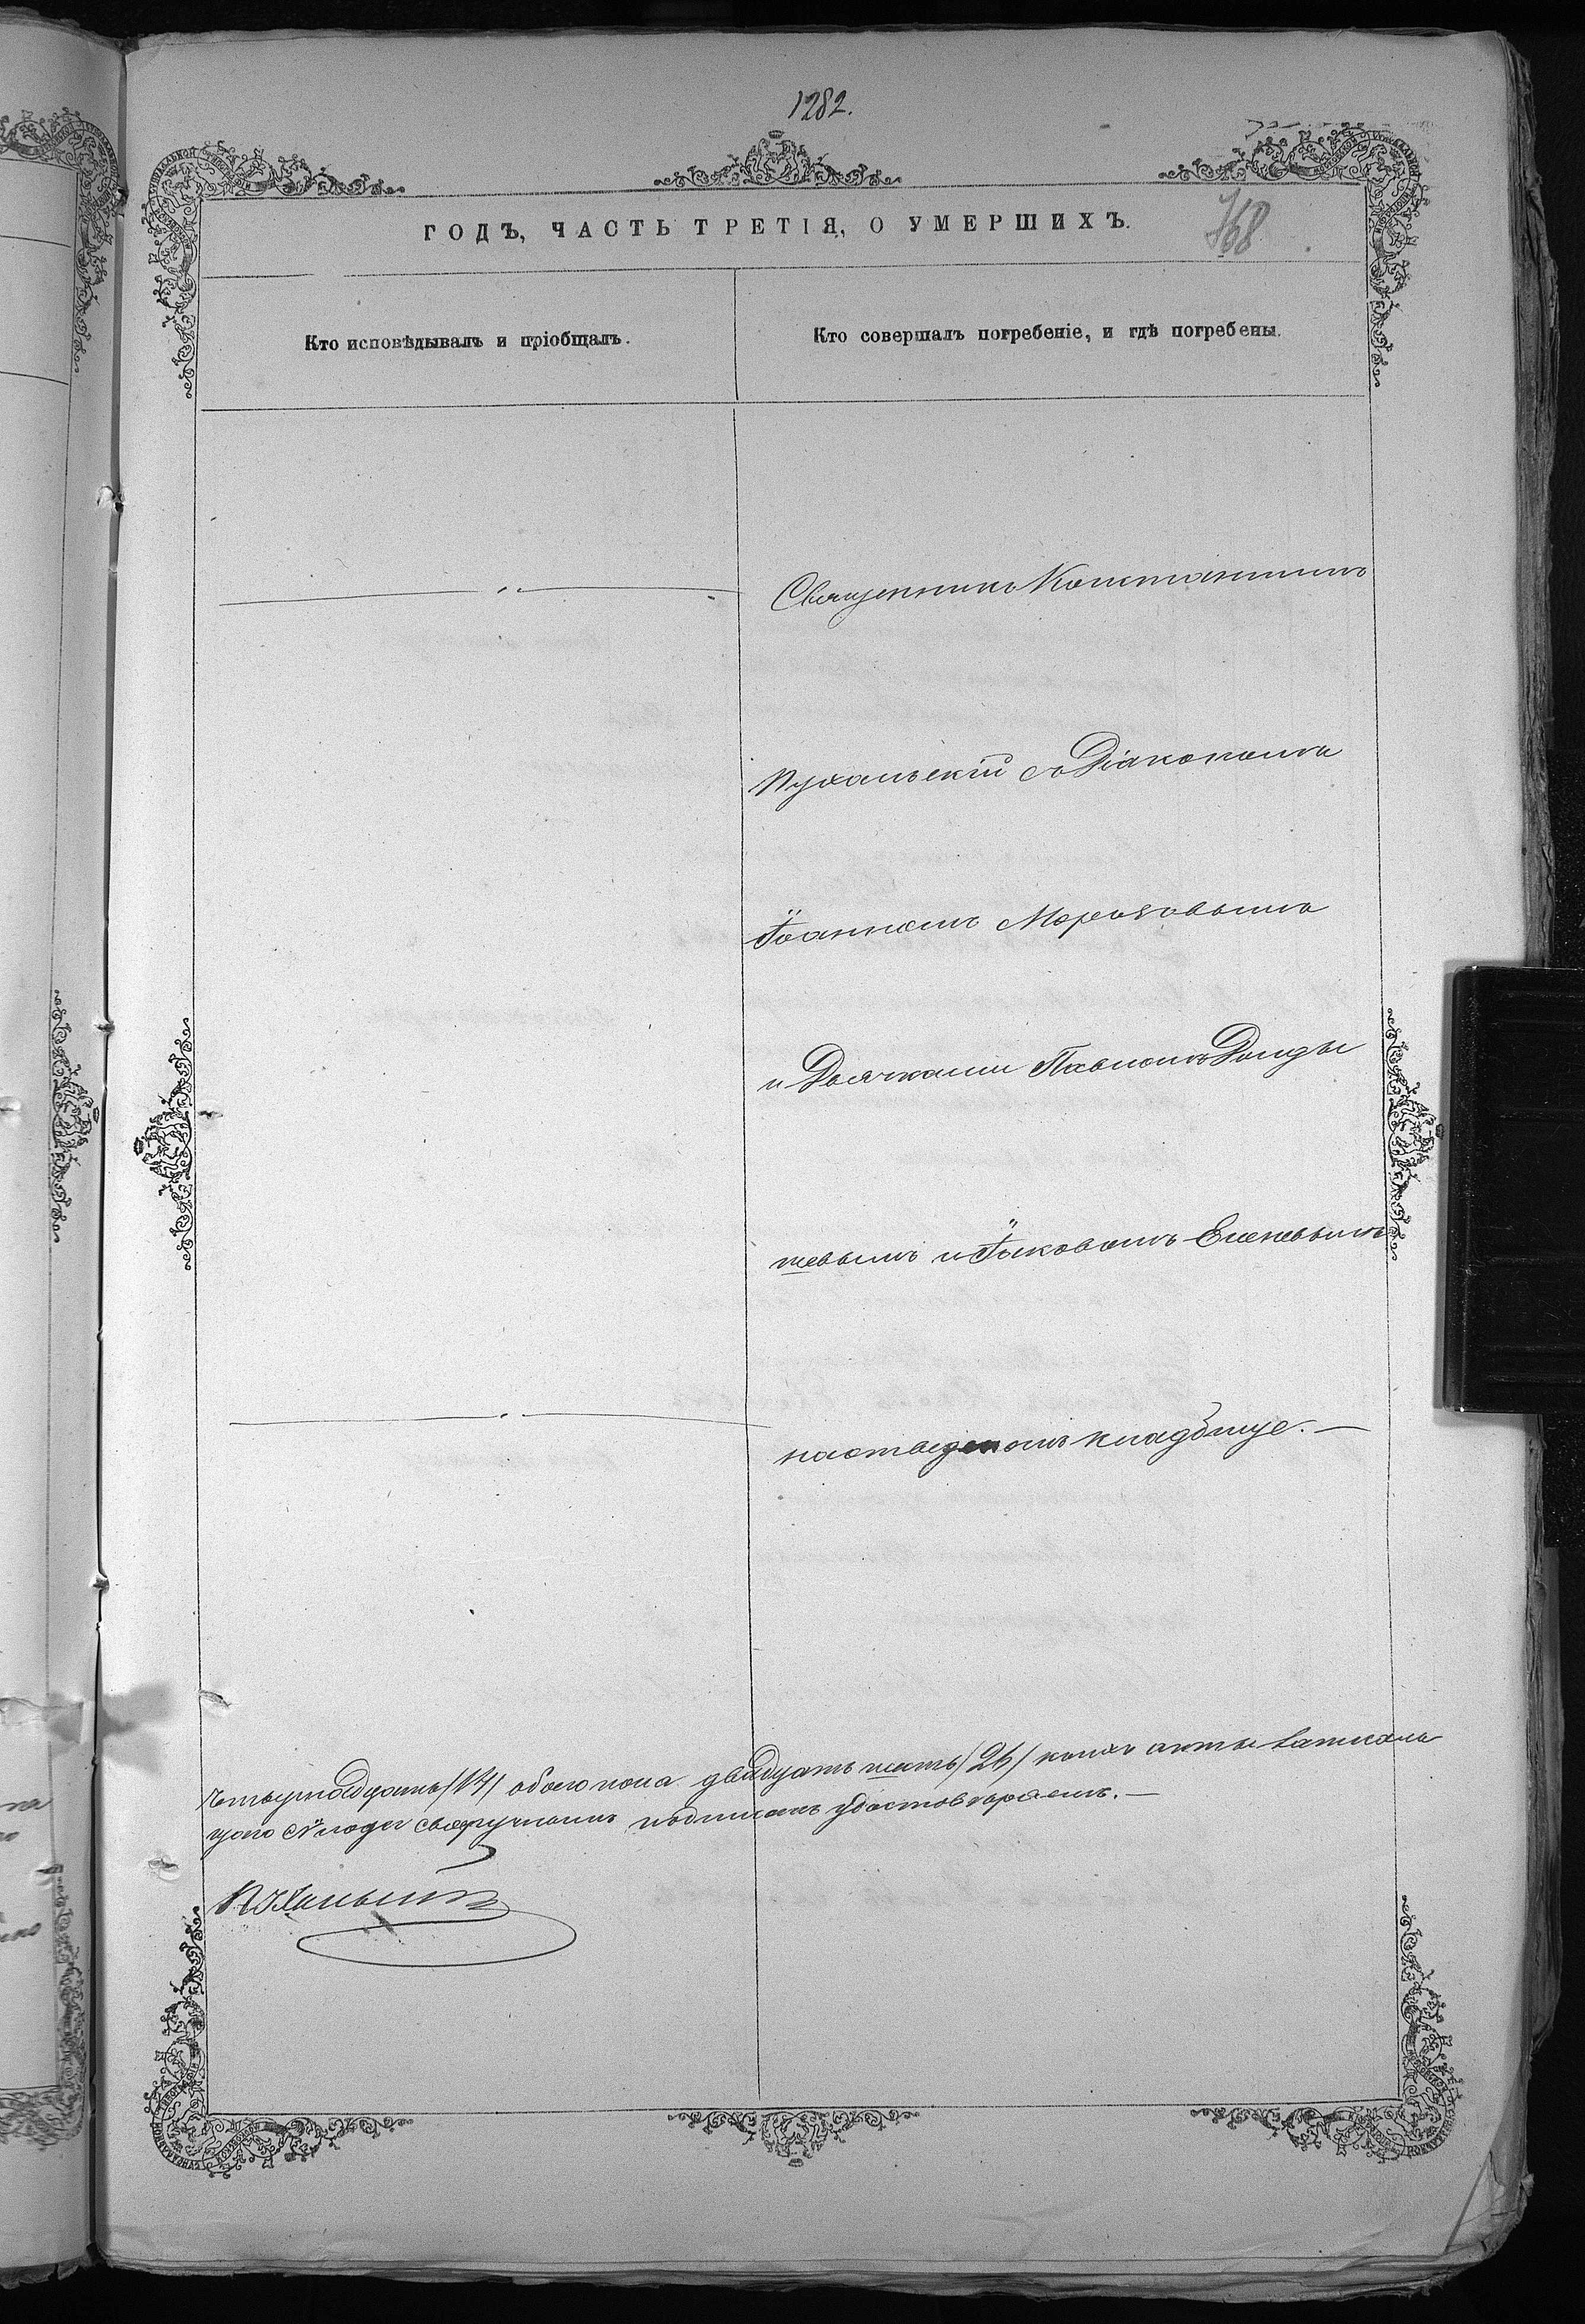 1282.
ГОДЪ, ЧАСТЬ ТРЕТІЯ, О УМЕРШИХЪ.
768
Кто исповѣдывалъ и пріобщалъ.
Кто совершалъ погребеніе, и гдѣ погребены.
Священникъ Константинъ
съ Діакономъ
Іоанномъ Морозовымъ
и Дьячками Павломъ
и Іаковомъ
кладбище.—
четырнадцать /14/ обоего пола двадцать шесть /26/ коихъ акты записаны
года подписомъ удостовѣряемъ.—